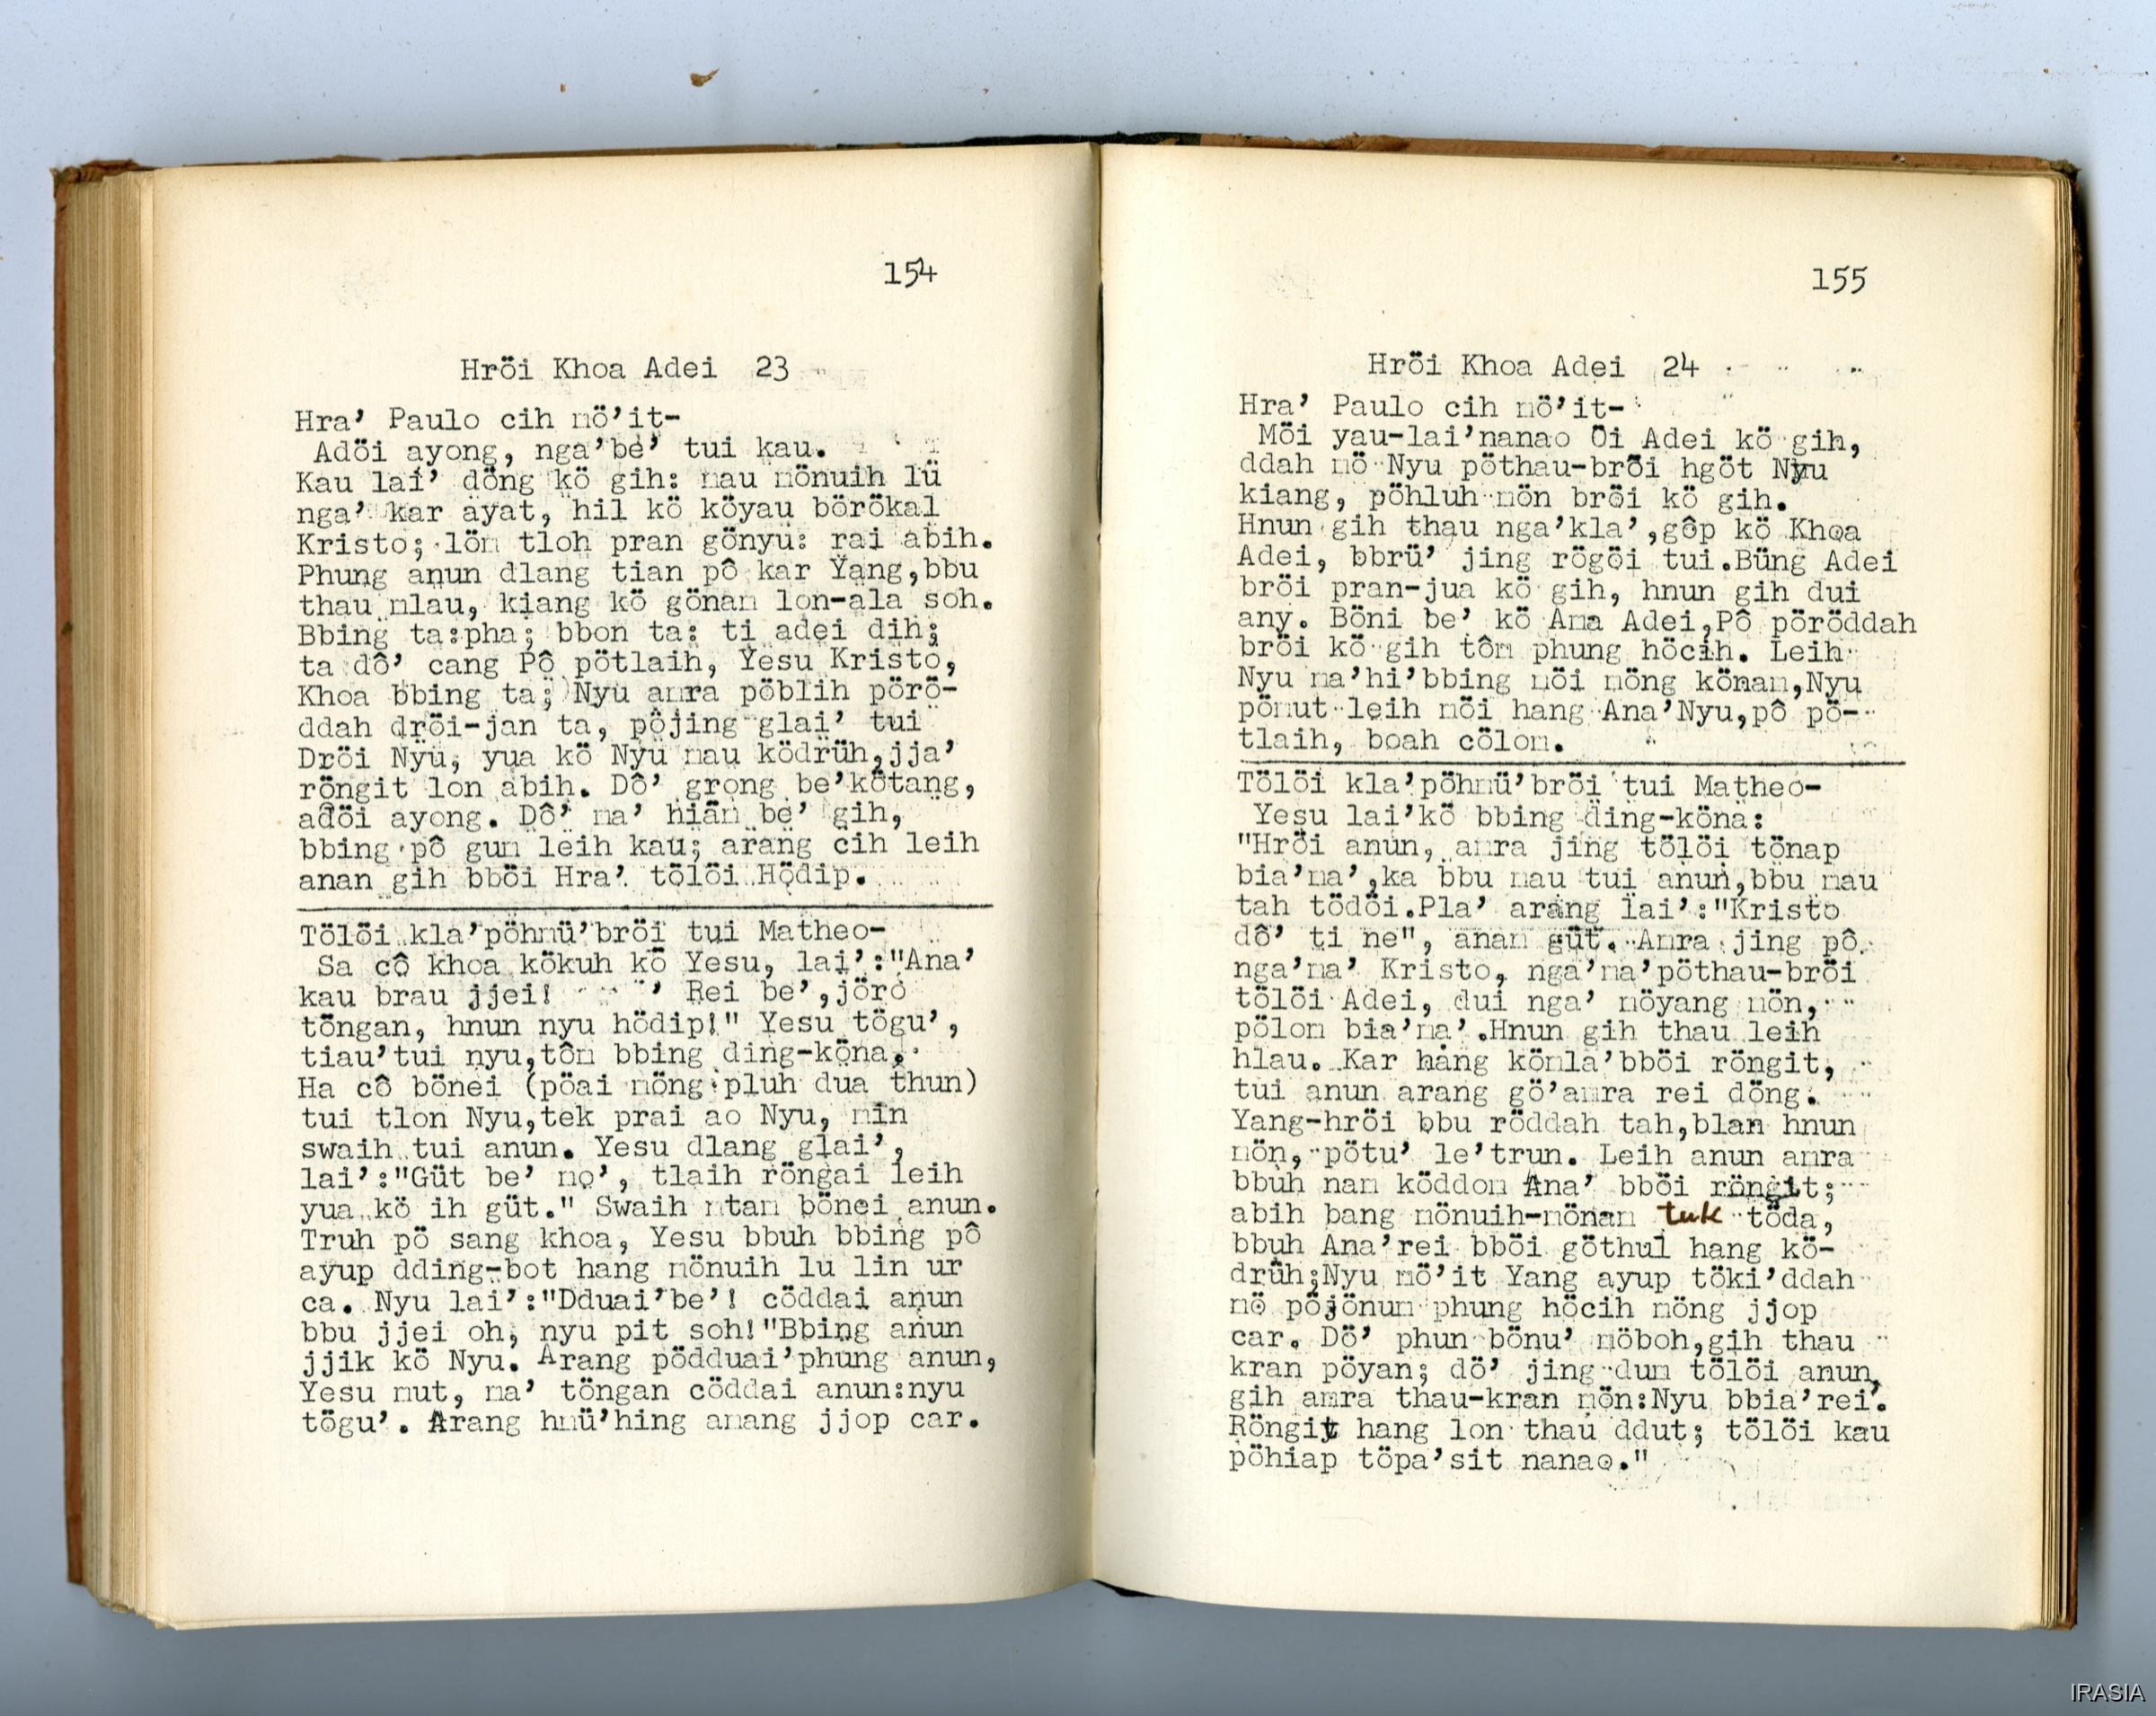 154
Hröi Khoa Adei 23
Hra' Paulo cih mö'it-
Adöi ayong, nga'be' tui kau.
Kau lai' döng kö gih: mau mönuih lü
nga' kar ayat, hil kö köyau börökal
Kristo; löm tloh pran gönyu: rai abih.
Phung anun dlang tian pô kar Yang,bbu
thau mlau, kiang kö gönam lon-ala soh.
Bbing ta:pha; bbon ta: ti adei dih;
ta dô' cang Pô pötlaih, Yesu Kristo,
Khoa bbing ta; Nyu amra pöblih pörö-
ddah dröi-jan ta, pöjing glai' tui
Dröi Nyu, yua kö Nyu mau ködrüh,jja'
röngit lon abih. Dô' grong be'kötang,
adöi ayong. Dô' ma' hiam be' gih,
bbing pô gum leih kau; arang cih leih
anan gih bböi Hra' tölöi Hödip.
Tölöi kla'pöhmü'bröi tui Matheo-
Sa cô khoa kökuh kö Yesu, lai':"Ana'
kau brau jjei! Rei be',jörö
töngan, hnun nyu hödip!" Yesu tögu',
tiau'tui nyu,tôm bbing ding-köna.
Ha cô bönei (pöai möng pluh dua thun)
tui tlon Nyu,tek prai ao Nyu, min
swaih tui anun. Yesu dlang glai',
lai':"Güt be' mo', tlaih röngai leih
yua kö ih güt." Swaih mtam bönei anun.
Truh pö sang khoa, Yesu bbuh bbing pô
ayup dding-bot hang mönuih lu lin ur
ca. Nyu lai':"Dduai'be'! cöddai anun
bbu jjei oh, nyu pit soh!"Bbing anun
jjik kö Nyu. Arang pödduai'phung anun,
Yesu mut, ma' töngan cöddai anun:nyu
tögu'. Arang hmü'hing anang jjop car.
155
Hröi Khoa Adei 24
Hra' Paulo cih mö'it-
Möi yau-lai'nanao Öi Adei kö gih,
ddah mö Nyu pöthau-bröi hgöt Nyu
kiang, pöhluh mön bröi kö gih.
Hnun gih thau nga'kla',gôp kö Khoa
Adei, bbrü' jing rögöi tui.Büng Adei
bröi pran-jua kö gih, hnun gih dui
any. Böni be' kö Ama Adei,Pô pöröddah
bröi kö gih tôm phung höcih. Leih
Nyu ma'hi'bbing möi möng könam,Nyu
pömut leih möi hang Ana'Nyu,pô pö-
tlaih, boah cölom.
Tölöi kla'pöhmü'bröi tui Matheo-
Yesu lai'kö bbing ding-köna:
"Hröi anun, amra jing tölöi tönap
bia'ma',ka bbu mau tui anun,bbu mau
tah tödöi.Pla' arang lai':"Kristo
dô' ti ne", anam güt. Amra jing pô
nga'ma' Kristo, nga'ma'pöthau-bröi
tölöi Adei, dui nga' möyang mön,
pölom bia'ma'.Hnun gih thau leih
hlau. Kar hang kömla'bböi röngit,
tui anun arang gö'amra rei döng.
Yang-hröi bbu röddah tah,blan hnun
mön, pötu' le'trun. Leih anun amra
bbuh nam köddom Ana' bböi röngit;
abih bang mönuih-mönam tuk töda,
bbuh Ana'rei bböi göthul hang kö-
drüh;Nyu mö'it Yang ayup töki'ddah
mö pöjönum phung höcih möng jjop
car. Dö' phun bönu' möboh,gih thau
kran pöyan; dö' jing dum tölöi anun,
gih amra thau-kran mön:Nyu bbia'rei.
Röngit hang lon thau ddut; tölöi kau
pöhiap töpa'sit nanao."
IRASIA